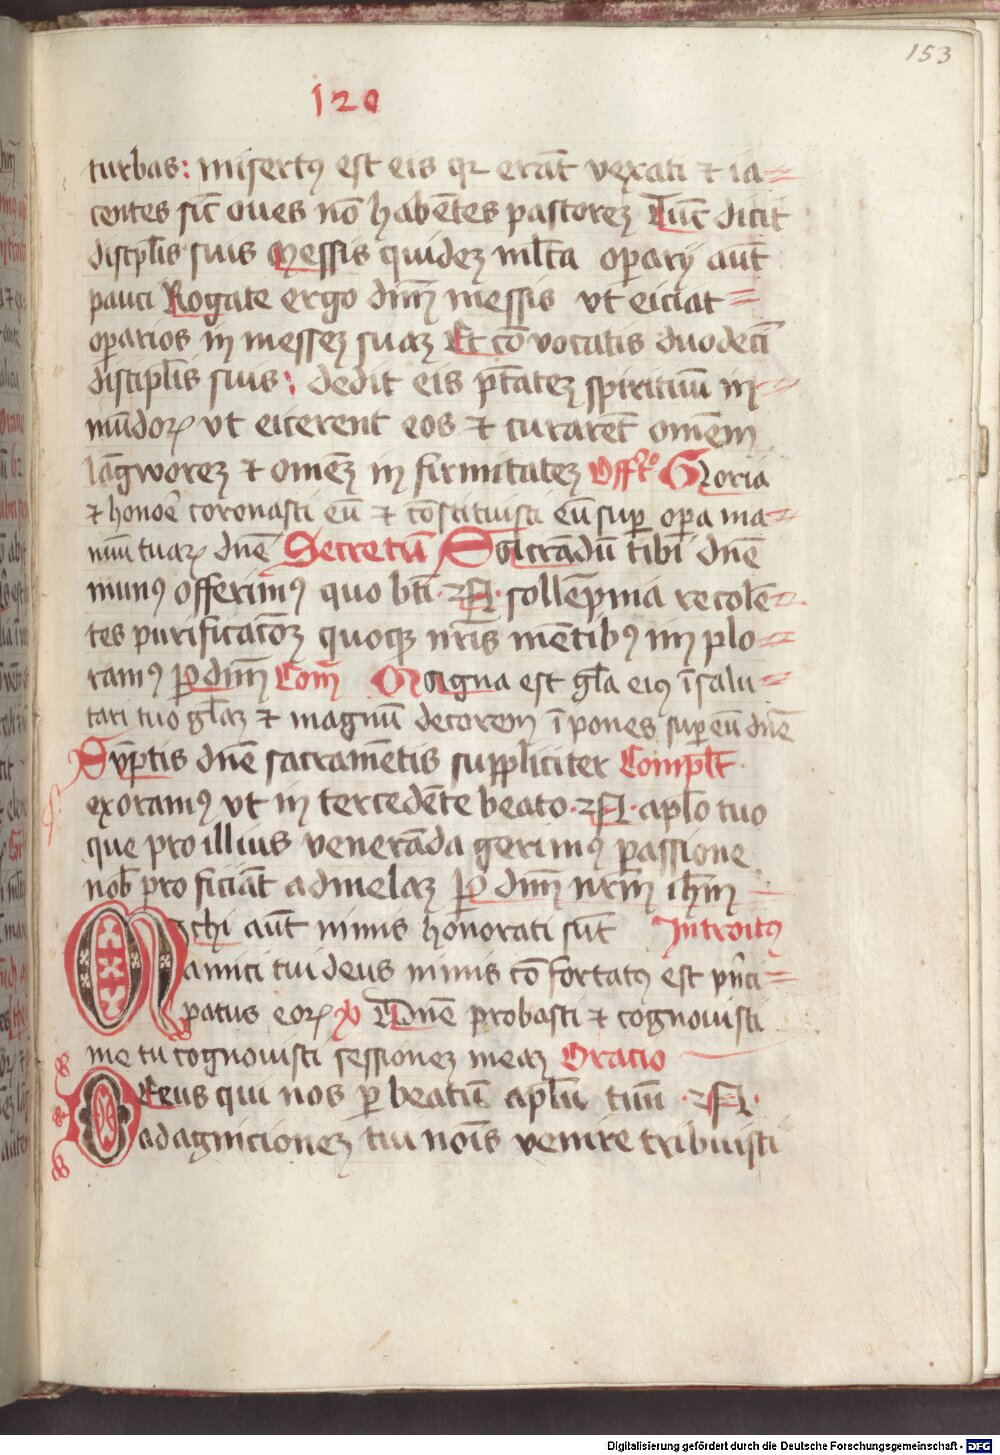 153
120
turbas: misertꝰ est eis qꝛ erāt vexati ⁊ ia=
centes sic̄ oues nō habētes pastoreꝫ Tūc dicit
discpl̄is suis Messis quideꝫ ml̄ta oꝑarij aūt
pauci Rogate ergo dn̄m messis vt eiciat=
oꝑarios in messeꝫ suaꝫ Et cō vocatis duodeci̅
discipl̄is suis: dedit eis pt̄ateꝫ spirituū in=
mūdoꝝ vt eicerent eos ⁊ curarēt omēm
lāgworeꝫ ⁊ omēꝫ in firmitateꝫ Offᵒtᵒ Gloria
⁊ honoē coronasti eū ⁊ cōstituisti eū suꝑ oꝑa ma=
nuū tuaꝝ dn̄e Secretū Sacrandū tibi dn̄e
munꝰ offerimꝰ quo bt̄i · N · sollēpnia recolē=
tes purificatōꝫ quoqꝫ nr̄is mētibꝰ im plo=
ramꝰ ꝑ dn̄m Com̄ Magna est gl̄a eiꝰ ī salu=
tari tuo gl̄aꝫ ⁊ magnū decorem ī pones suꝑ eū dn̄e
Sūptis dn̄e sacramētis suppliciter Complt̄
exoramꝰ vt in tercedēte beato · N · apl̄o tuo
que pro illius veneranda gerimꝰ passione
nob̄ pro ficiāt ad medelaꝫ Ꝑ dn̄m nr̄m ih̄m
Michi aūt nimis honorati sūt Introitꝰ
amici tui deus nimis cō fortatꝰ est pn̄ci=
patus eoꝝ ℣ Dn̄e probasti ⁊ cognouisti
me tu cognouisti sessioneꝫ meaꝫ Oracio
Deus qui nos ꝑ beatū apl̄m tuū · N ·
ad agnicioneꝫ tui nōis venire tribuisti
Digitalisierung gefördert durch die Deutsche Forschungsgemeinschaft - DFG